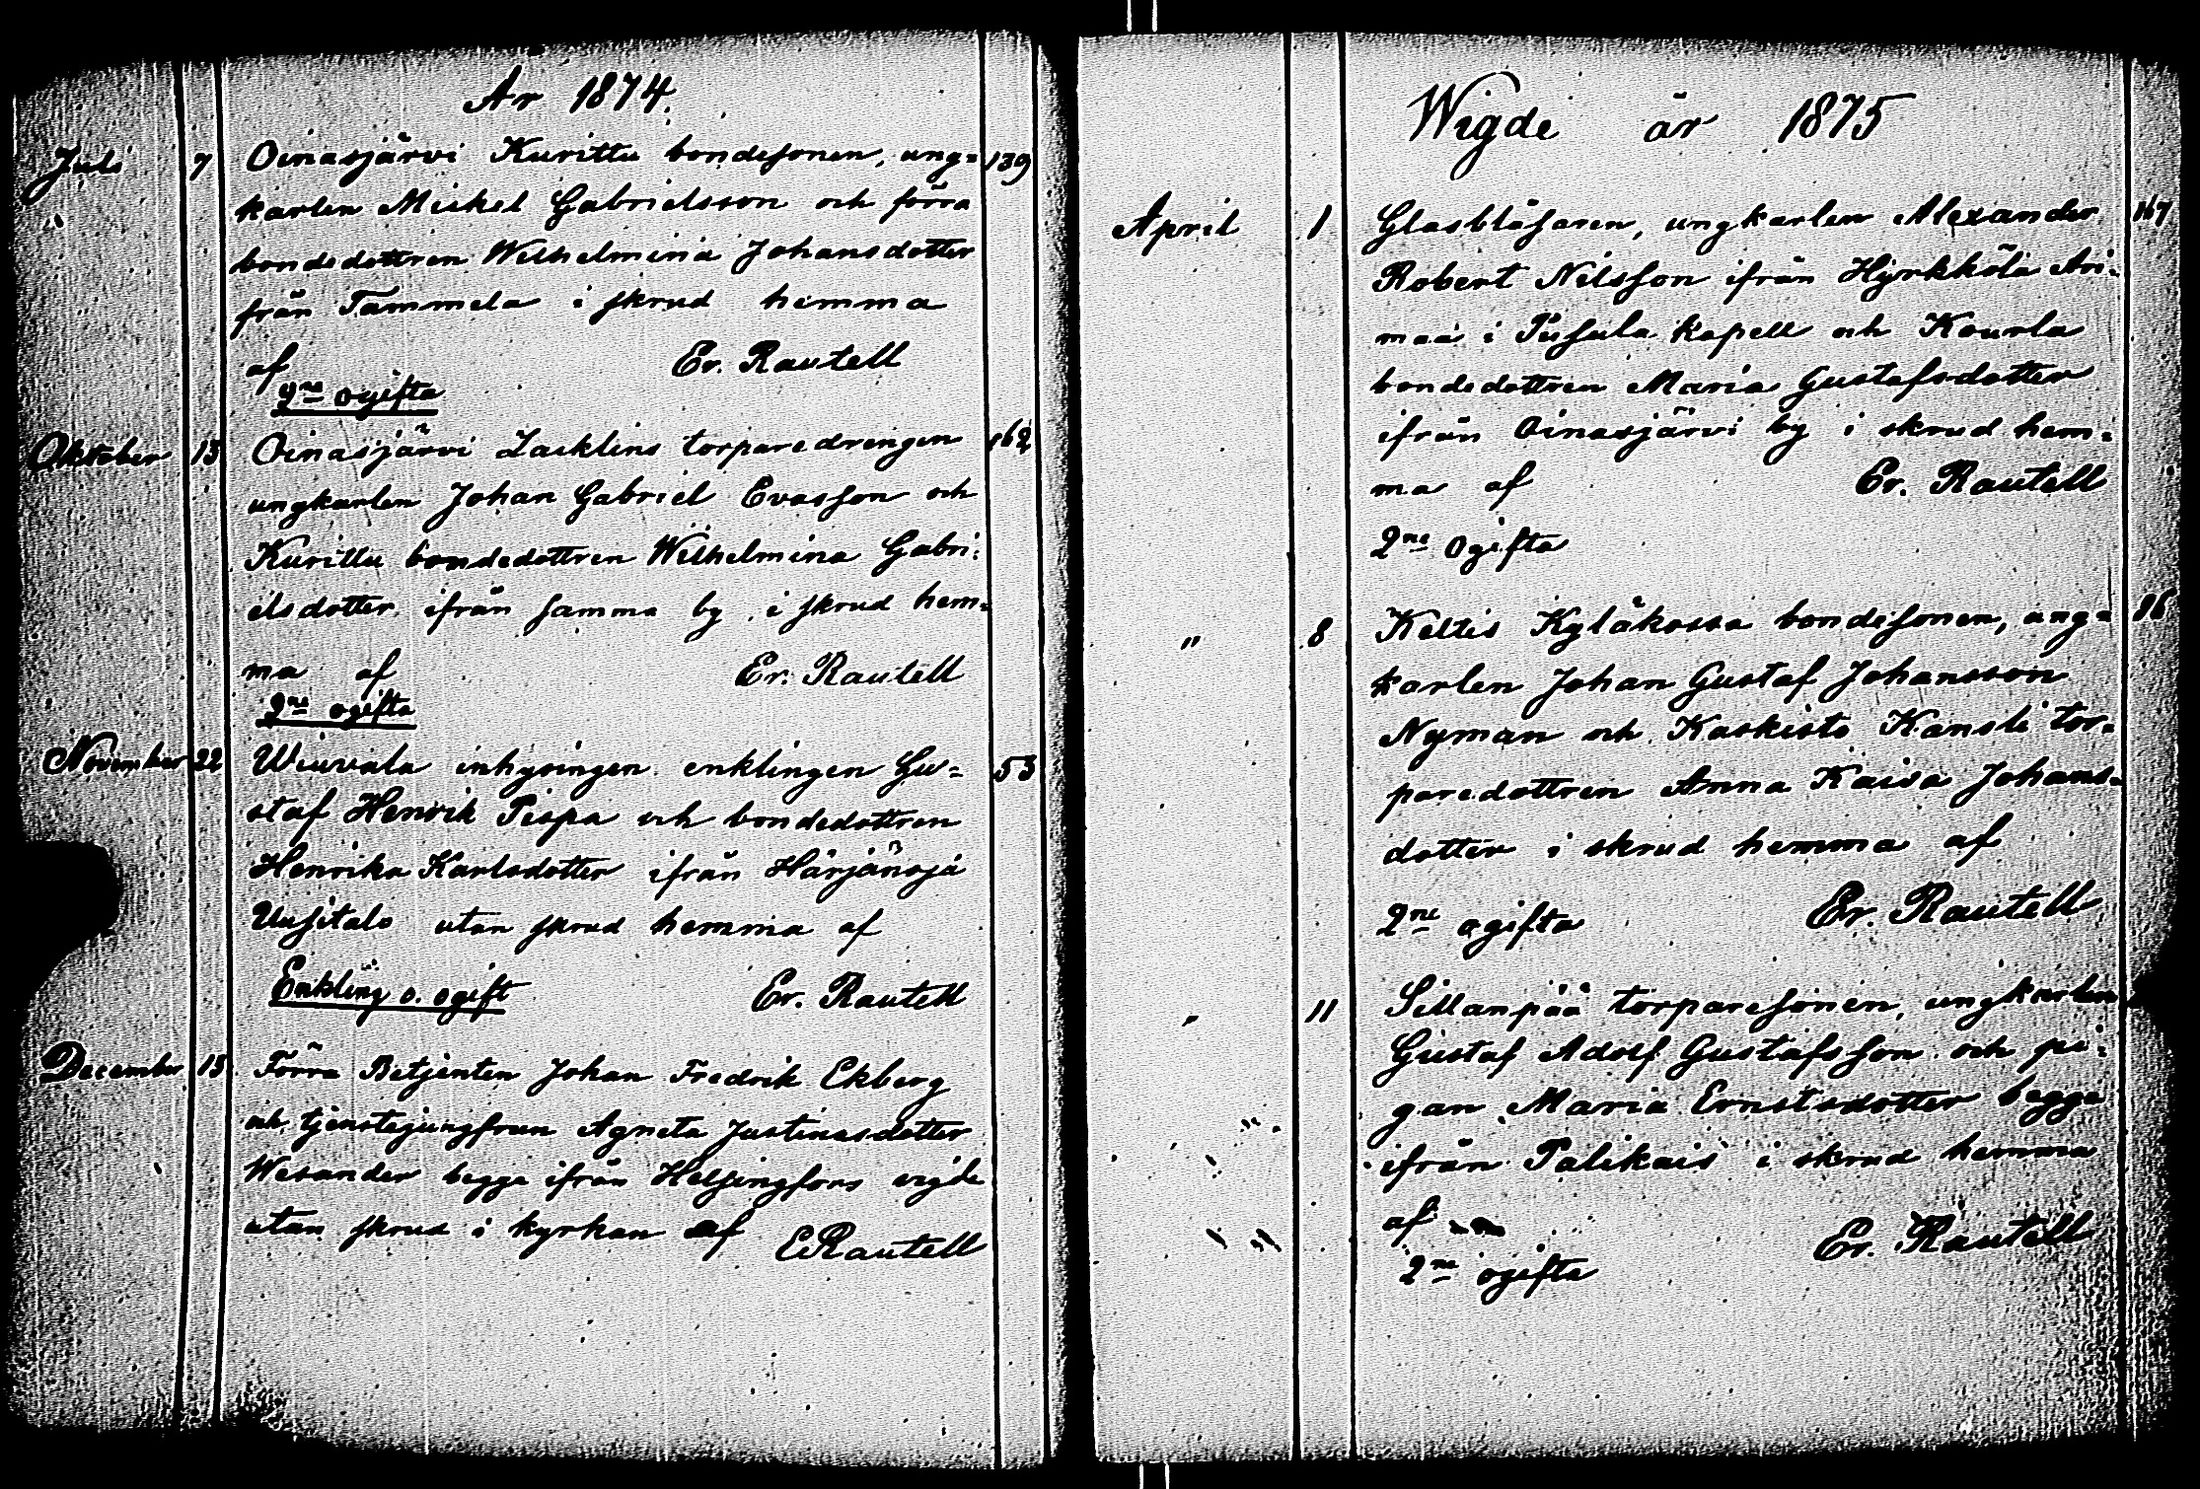 År 1874.
Juli 7 Oinasjärvi Kurittu bondesonen, ung= 139
karlen Mickel Gabrielsson och förra
bondedottren Wilhelmina Johansdotter
från Tammela i skrud hemma
af Er. Rautell
2ne ogifta
Oktober 13 Oinasjärvi Lacklins torparedrengen 162
ungkarlen Johan Gabriel Evasson och
Kurittu bondedottren Wilhelmina Gabri=
elsdotter ifrån samma by i skrud hem=
ma af Er. Rautell
2ne ogifta
November 22 inhysingen enklingen Gu= 53
staf Henrik Pispa och bondedottren
Henrika Karlsdotter ifrån Härjänojä
Uusitalo utan skrud hemma af
Enkling o. ogift Er. Rautell
December 15 Förra Betjenten Johan Fredrik Ekberg
och tjenstejungfrun Agneta Justinasdotter
Wesander begge ifrån Helsingfors vigde
utan skrud i kyrkan af E Rautell
Wigde år 1875
April 1 Glasblåsaren, ungkarlen Alexander 167
Robert Nilsson ifrån Hyrkkölä Ani=
maa i Pusula kapell och Kourla
bondedottren Maria Gustafsdotter
ifrån Oinasjärvi by i skrud hem=
ma af Er. Rautell
2ne Ogifta
" 8 Keltis Kyläkossa bondesonen, ung= 86
karlen Johan Gustaf Johansson
Nyman och Kaskisto Kansli tor=
paredottren Anna Kaisa Johans=
dotter i skrud hemma af
2ne ogifta Er. Rautell
" 11 Sillanpää torparesonen, ungkarlen
Gustaf Adolf Gustafsson och pi=
gan Maria Ernstsdotter begge
ifrån Palikais i skrud hemma
af Er. Rautell
2ne ogifta